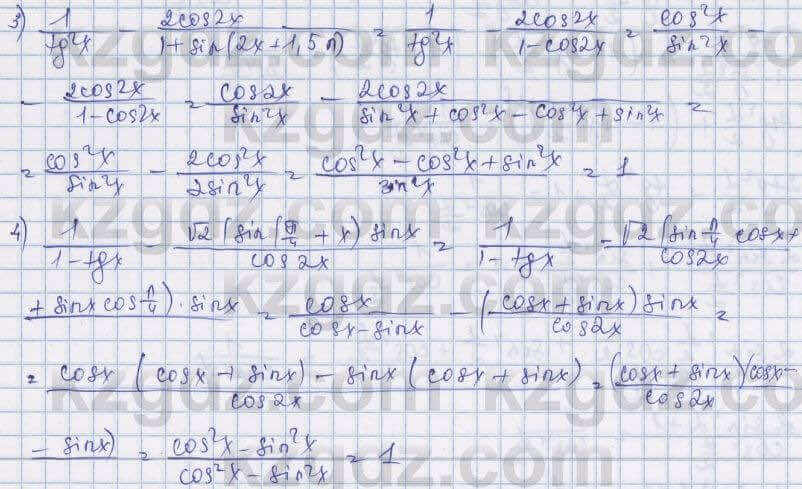 3) 1/tg²x - 2cos2x/1+sin(2x+1,5π) = 1/tg²x - 2cos2x/1-cos2x = cos²x/sin²x -
- 2cos2x/1-cos2x = cos2x/sin²x - 2cos2x/sin²x+cos²x-cos²x+sin²x =
= cos²x/sin²x - 2cos²x/2sin²x = cos²x-cos²x+sin²x/sin²x = 1
4) 1/1-tgx - √2(sin(π/4+x)sinx/cos2x = 1/1-tgx - √2(sin π/4 cosx+
+sinxcos π/4)·sinx/cos2x = cosx/cosx-sinx - (cosx+sinx)sinx/cos2x =
= cosx(cosx+sinx)-sinx(cosx+sinx)/cos2x = (cosx+sinx)(cosx-
-sinx)/cos2x = cos²x-sin²x/cos²x-sin²x = 1
kzgdz.com